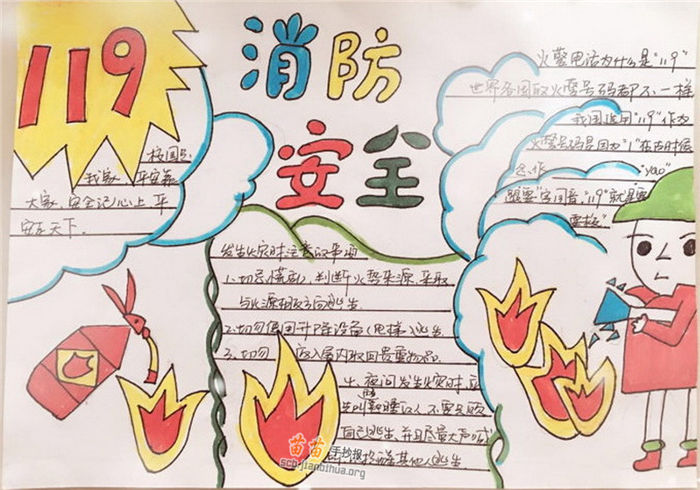 119
消防
安全
火警电话为什么是"119"
世界各国取火警号码都不一样
我国选用"119"作为
火警号码是因为"1"在古时候
念作"yao"
跟"要"字同音."119"就是要
要救"
校园是
我家 平安靠
大家.安全记心上 平
安走天下。
发生火灾时注意的事项
1.切忌慌乱,判断火势来源,采取
与火源相反方向逃生
2.切勿使用升降设备(电梯)逃生
3.切勿 入屋内取回贵重物品.
4.夜间发生火灾时,应
先叫 熟睡的人 不要只顾
自己逃生 并且尽量大声喊
其他人逃生
苗苗手抄报
scb.jianbihua.org